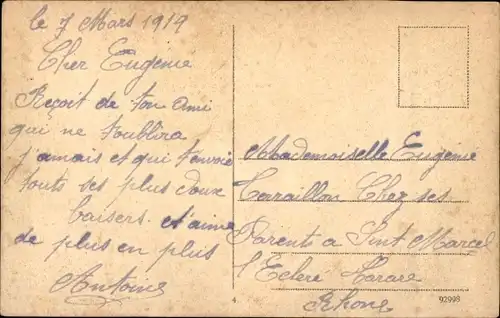 le 7 Mars 1919
Cher Eugenie
Reçoit de ton ami
qui ne t'oublira
j'amais et qui t'envoie
touts ses plus doux
baisers et t'aime
de plus en plus
Antoine
Mademoiselle Eugenie
Terraillon Chez ses
Parents a Sint Marcel
l'Ecleré Tarare
Rhone
4.
92998